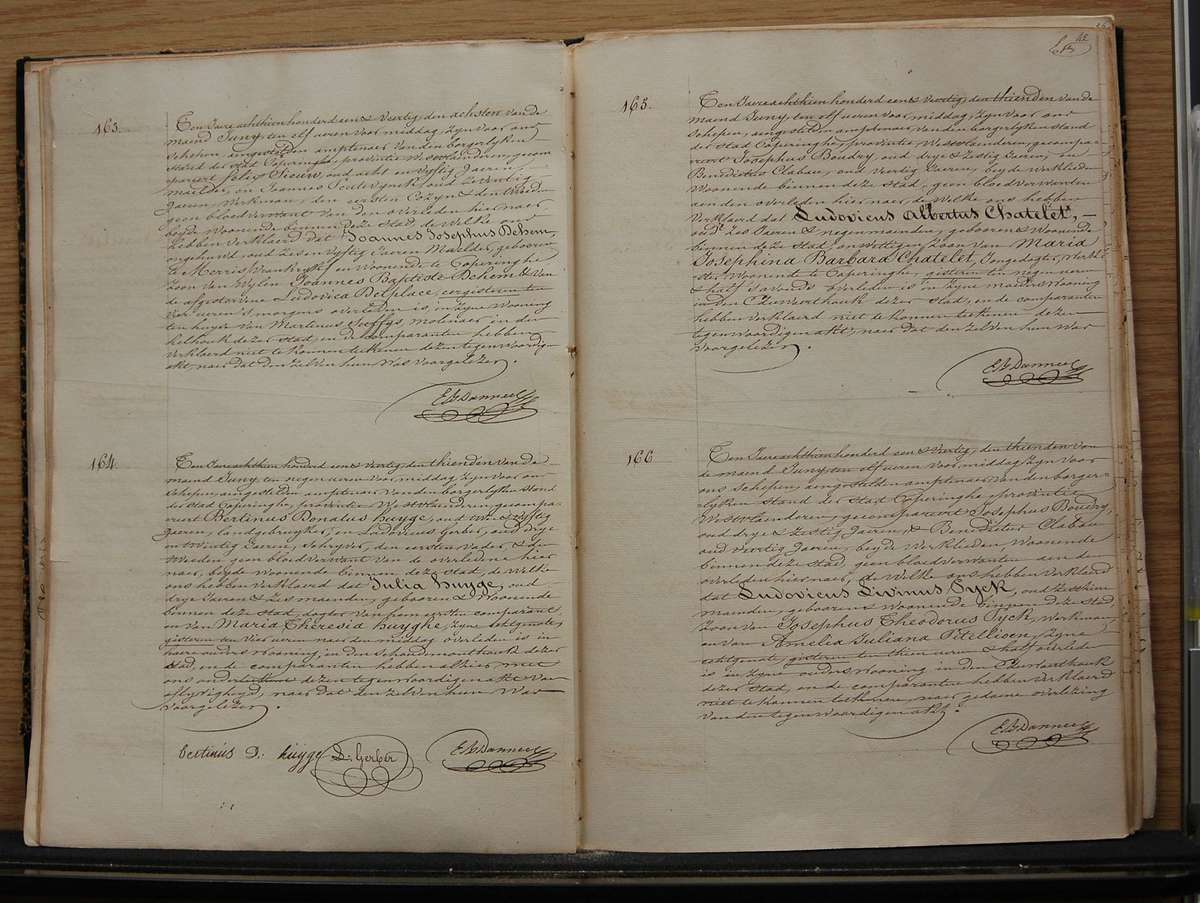 163.
Ten Jaere achthien honderd een & veertig, den achsten van de
maend Juny, ten elf ueren voor middag, zyn voor ons
schepen, aengestelden amptenaer van den borgerlyken
stand der stad Poperinghe, provintie Westvlaenderen, gecom
pareert Felix Sieuw, oud acht en vyftig Jaeren,
en Joannes
Jaeren, Werkman, den eersten Cozyn & den tweeden
geen bloedverwant van den overleden hier naer,
beyde Woonende binnen deze stad, de Welke ons
hebben verklaerd dat Joannes Josephus Dehem,
ongehuwd, oud zes en vyftig Jaeren, Maelder, geboren
te Merris Vrankryk, en Woonende te Poperinghe
zoon van Wylen Joannes Baptiste Dehem & van
de afgestorvene Ludovica Delplace, eergisteren ten
vier ueren 's morgens overleden is, in zyne Wooning
ten huyze van Martinus molenaer in de
helhoek dezer stad, en de comparanten hebben
verklaerd niet te konnen teekenen dezen tegenwoordigen
akt, naer dat den zelven hun was voorgelezen.
E B Danneel
164.
Ten Jaere achthien honderd een & veertig, den thienden van de
maend Juny, ten negen ueren voor middag, zyn voor ons
schepen, aengestelden amptenaer van den borgerlyken stand
der stad Poperinghe, provintie Westvlaenderen, gecompa
reert Bertinus Donatus Huyge, oud een & vyftig
Jaeren, landgebruyker, en Ludovicus Gerber, oud drye
en veertig Jaeren, schryver, den eersten vader & den
tweeden geen bloedverwant van de overleden hier
naer, beyde woonende binnen deze stad, de Welke
ons hebben verklaerd dat Julia Huyge, oud
drye Jaeren & zes maenden, geboren & Woonende
binnen deze stad, dogter van den eersten comparant
en van Maria Theresia Huyghe, zyne echtgenote,
gisteren ten vier ueren naer den middag overleden is in
haere ouders wooning, in den Schoudemonthoek dezer
stad, en de comparanten hebben alhier met
ons onderteekend dezen tegenwoordigen akt van
aflyvigheyd, naer dat den zelven hun Was
voorgelezen.
Bertinus D: huyge L. Gerber E B Danneel
165.
Ten Jaere achthien honderd een & veertig, den thienden van de
maend Juny, ten elf ueren voor middag, zyn voor ons
schepen, aengestelden amptenaer van den borgerlyken stand
der stad Poperinghe, provintie Westvlaenderen, gecompa
reert Josephus Boudry, oud drye & zestig Jaeren, en
Benedictus Clabau, oud veertig Jaeren, beyde Werklieden
Woonende binnen deze stad, geen bloedverwanten
aen den overleden hier naer, de Welke ons hebben
verklaerd dat Ludovicus Albertus Chatelet,
oud zes Jaeren & negen maenden, geboren & Woonende
binnen deze stad, onwettigen zoon van Maria
Josephina Barbara Chatelet, Jongedogter,
Woonende te Poperinghe, gisteren ten negen ueren
& half 's avonds overleden is in zyne moeders wooning
in den dezer stad, en de comparanten
hebben verklaerd niet te konnen teekenen dezen
tegenwoordigen akt, naer dat den zelven hun was
voorgelezen.
E B Danneel
166
Ten Jaere achthien honderd een & veertig, den thienden van
de maend Juny ten elf ueren voor middag zyn voor
ons schepen, aengestelden amptenaer van den borger-
lyken stand der stad Poperinghe provintie
Westvlaenderen, gecompareert Josephus Boudry,
oud drye & zestig Jaeren & Benedictus Clabau
oud veertig Jaeren, beyde Werklieden, Woonende
binnen deze stad, geen bloedverwanten aen den
overleden hier naer, de Welke ons hebben verklaerd
dat Ludovicus Livinus Tyck, oud zesthien
maenden, geboren & Woonende binnen deze stad,
zoon van Josephus Theodorus Tyck, Werkman,
en van Amelia Juliana Petillioen, zyne
echtgenote, gisteren ten thien ueren & half overleden
is in zyne ouders wooning in den
dezer stad, en de comparanten hebben verklaerd
niet te konnen teekenen, naer gedaene overlezing
van den tegenwoordigen akt.
E B Danneel